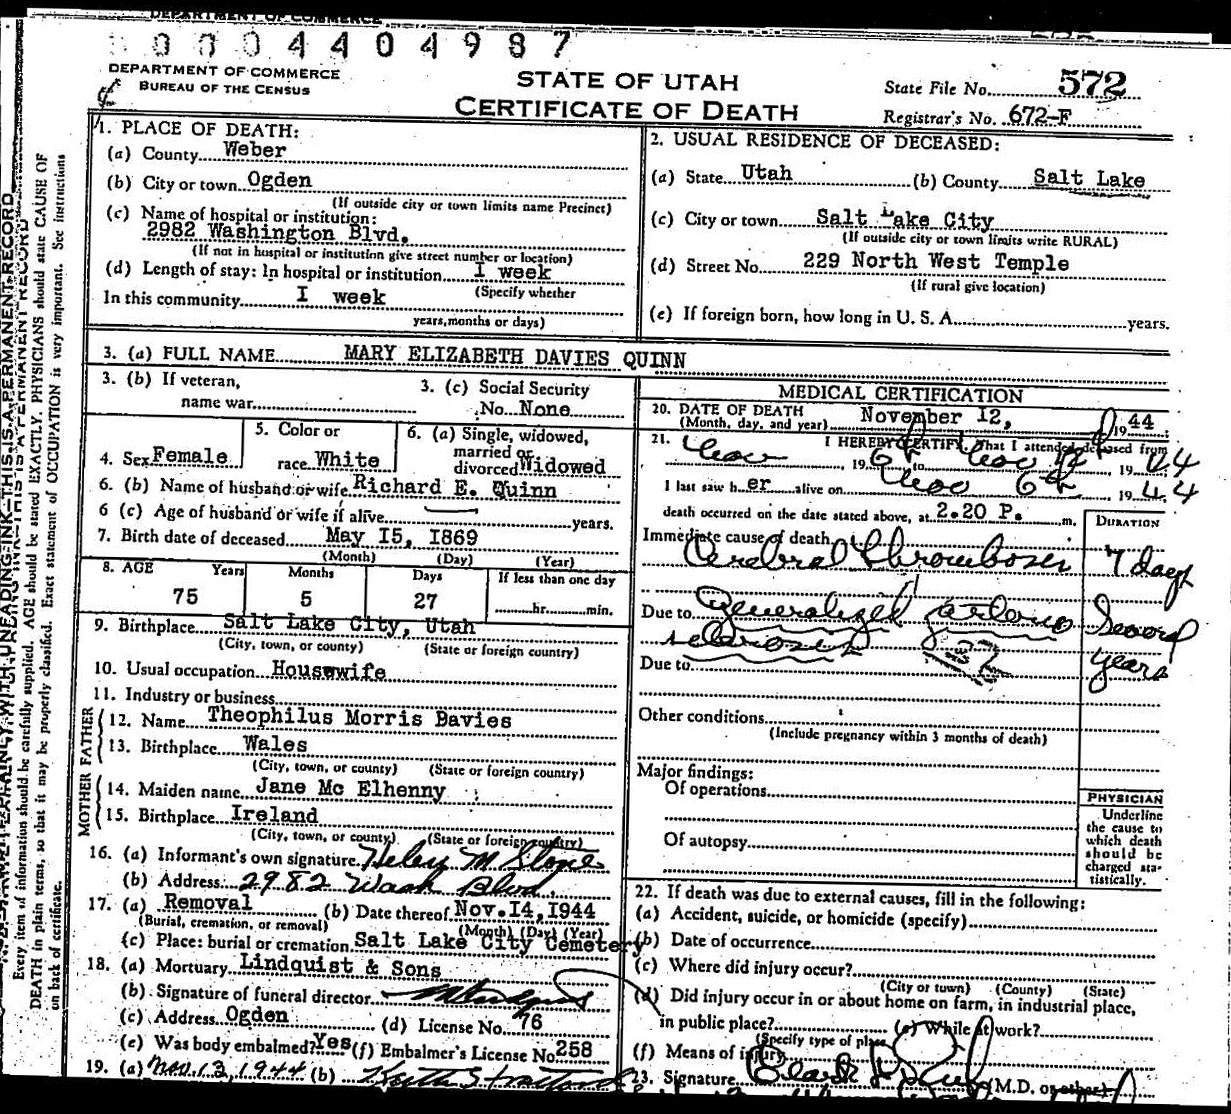 DEPARTMENT OF COMMERCE
0 0 0 4 4 0 4 9 8 7
DEPARTMENT OF COMMERCE
BUREAU OF THE CENSUS
STATE OF UTAH
CERTIFICATE OF DEATH
State File No. 572
Registrar's No. 672-F
1. PLACE OF DEATH:
(a) County Weber
(b) City or town Ogden
(If outside city or town limits name Precinct)
(c) Name of hospital or institution:
2982 Washington Blvd.
(If not in hospital or institution give street number or location)
(d) Length of stay: In hospital or institution I week
(Specify whether
In this community I week
years, months or days)
2. USUAL RESIDENCE OF DECEASED:
(a) State Utah (b) County Salt Lake
(c) City or town Salt Lake City
(If outside city or town limits write RURAL)
(d) Street No. 229 North West Temple
(If rural give location)
(e) If foreign born, how long in U. S. A. years.
3. (a) FULL NAME MARY ELIZABETH DAVIES QUINN
3. (b) If veteran,
name war
3. (c) Social Security
No. None
4. Sex Female
5. Color or
race White
6. (a) Single, widowed,
married or
divorced Widowed
6. (b) Name of husband or wife Richard E. Quinn
6 (c) Age of husband or wife if alive years.
7. Birth date of deceased May I5, I869
(Month) (Day) (Year)
8. AGE Years Months Days If less than one day
75 5 27 hr. min.
9. Birthplace Salt Lake City, Utah
(City, town, or county) (State or foreign country)
10. Usual occupation Housewife
11. Industry or business
FATHER
12. Name Theophilus Morris Davies
13. Birthplace Wales
(City, town, or county) (State or foreign country)
MOTHER
14. Maiden name Jane Mc Elhenny
15. Birthplace Ireland
(City, town, or county) (State or foreign country)
16. (a) Informant's own signature Helen M
(b) Address 2982 Wash Blvd.
17. (a) Removal (b) Date thereof Nov. I4, 1944
(Burial, cremation, or removal) (Month) (Day) (Year)
(c) Place: burial or cremation Salt Lake City Cemetery
18. (a) Mortuary Lindquist & Sons
(b) Signature of funeral director
(c) Address Ogden (d) License No. 76
(e) Was body embalmed? Yes (f) Embalmer's License No. 258
19. (a) Nov. 13, 1944 (b)
MEDICAL CERTIFICATION
20. DATE OF DEATH November 12, 1944
(Month, day, and year)
21. I HEREBY CERTIFY, That I attended deceased from
Nov 6th, 19 to Nov 12, 1944
I last saw her alive on Nov 6th, 1944
death occurred on the date stated above, at 2.20 P. m.
DURATION
Immediate cause of death
Cerebral Thrombosis 7 days
Due to generalized arterio
sclerosis
years
Due to
Other conditions
(Include pregnancy within 3 months of death)
Major findings:
Of operations
Of autopsy
PHYSICIAN
Underline
the cause to
which death
should be
charged sta-
tistically.
22. If death was due to external causes, fill in the following:
(a) Accident, suicide, or homicide (specify)
(b) Date of occurrence
(c) Where did injury occur?
(City or town) (County) (State)
(d) Did injury occur in or about home on farm, in industrial place,
in public place? (e) While at work?
(Specify type of place)
(f) Means of injury
23. Signature (M.D. or other)
Every item of information should be carefully supplied. AGE should be stated EXACTLY. PHYSICIANS should state CAUSE OF
DEATH in plain terms, so that it may be properly classified. Exact statement of OCCUPATION is very important. See instructions
on back of certificate.